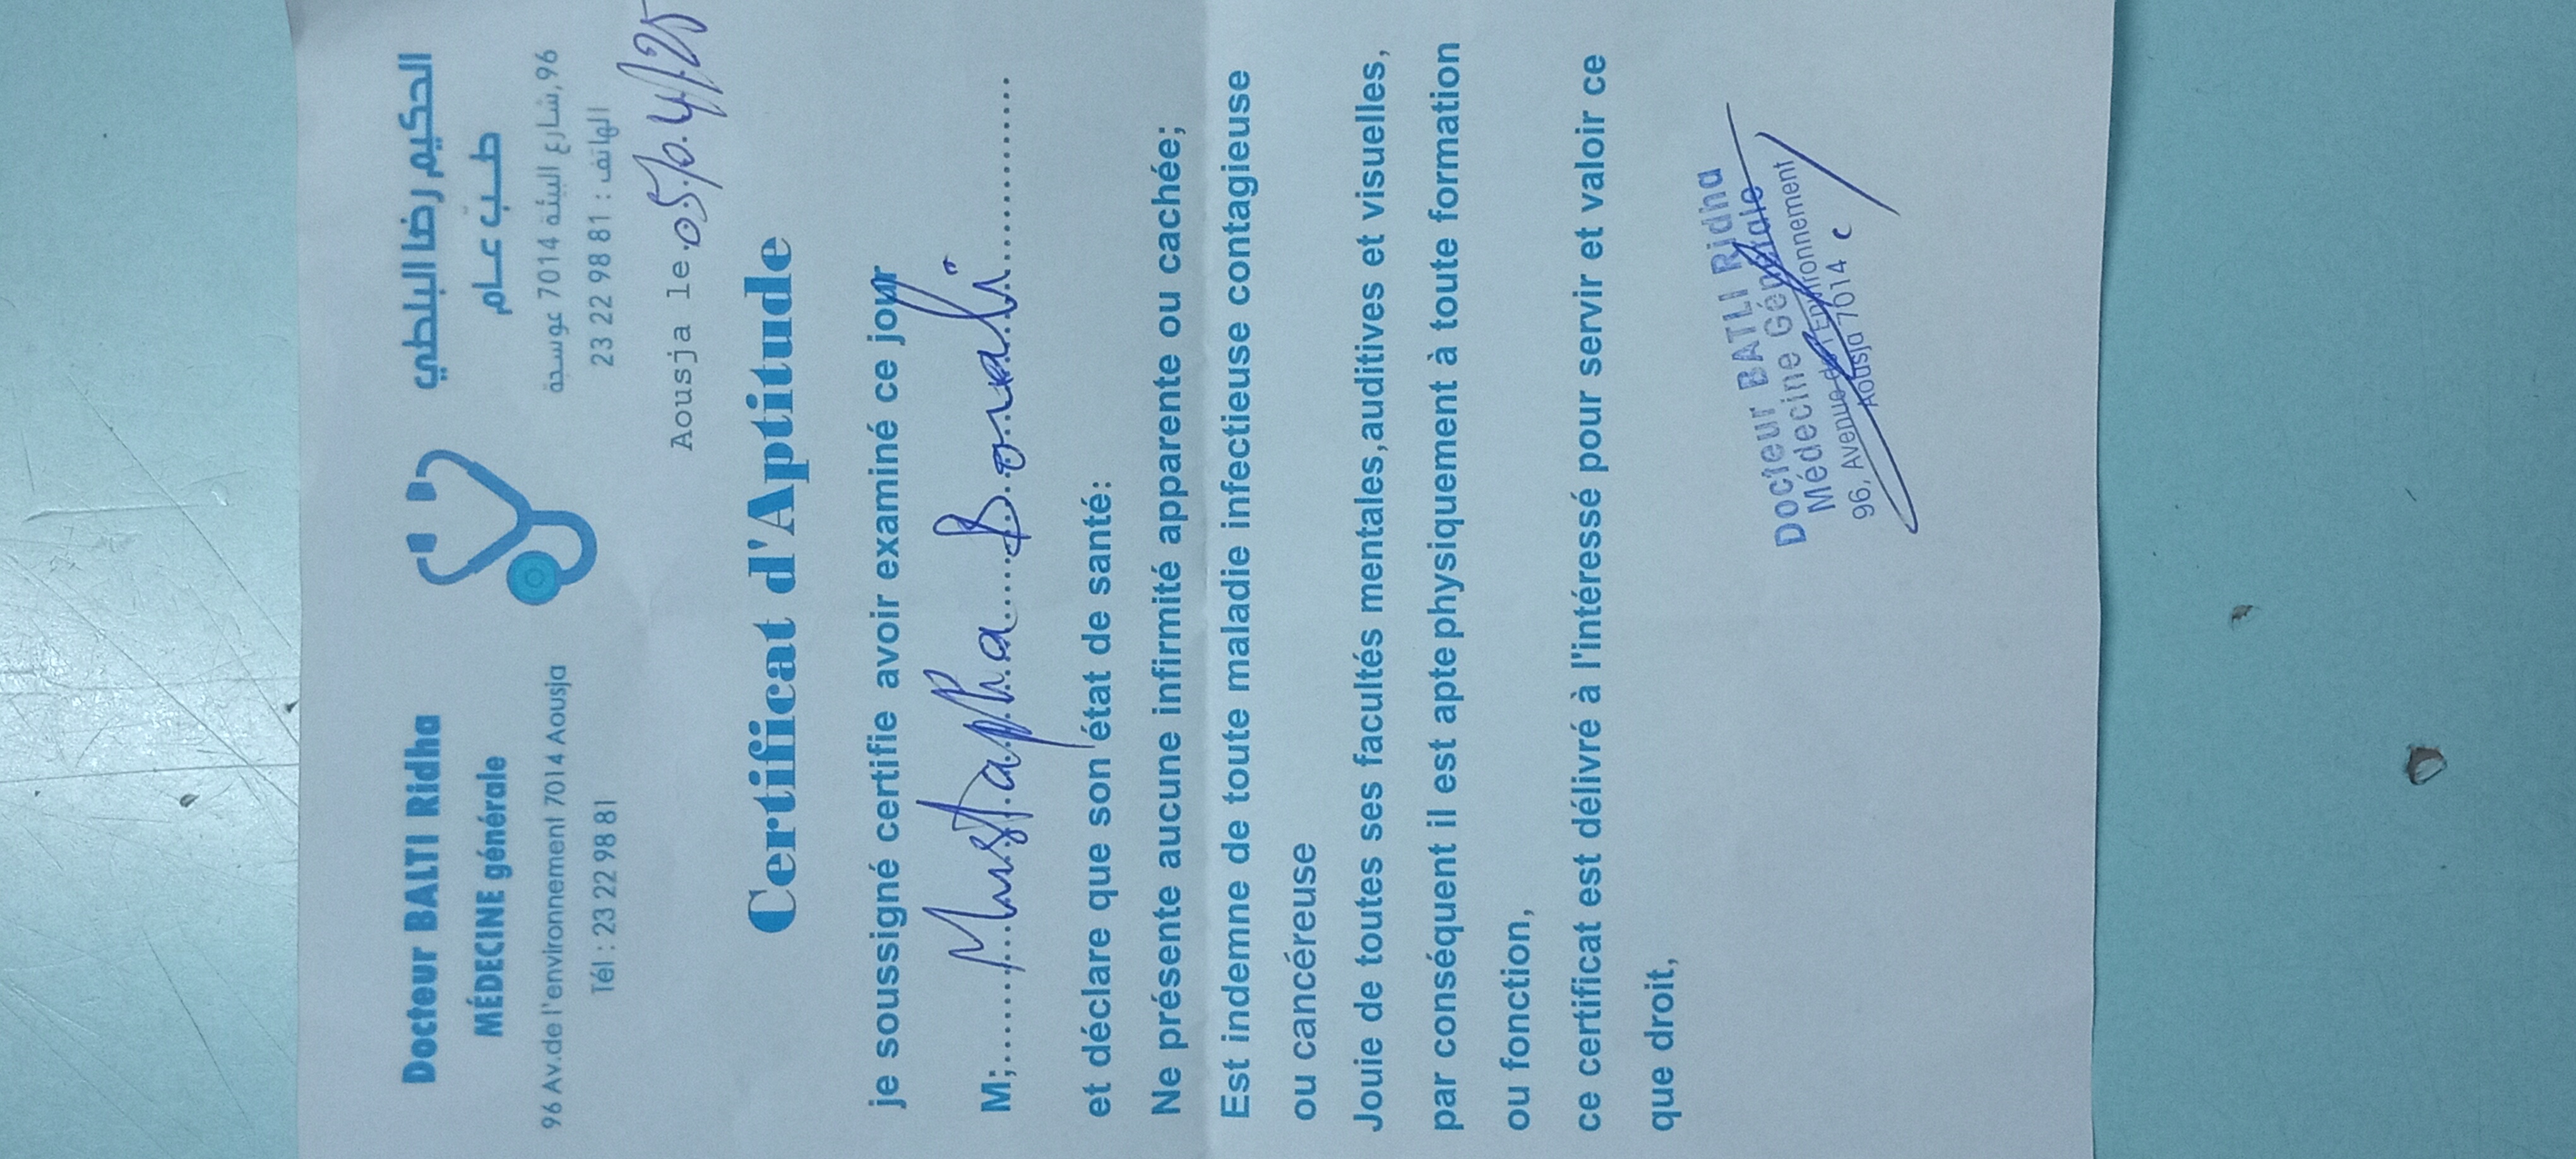 Docteur BALTI Ridha
MÉDECINE générale
96 Av.de l'environnement 7014 Aousja
Tél : 23 22 98 81
الحكيم رضا البلطي
طب عام
96,شارع البيئة 7014 عوسجة
الهاتف : 81 98 22 23
Aousja le 05/04/25
Certificat d'Aptitude
je soussigné certifie avoir examiné ce jour
M;....... Mustapha Bouali
et déclare que son état de santé:
Ne présente aucune infirmité apparente ou cachée;
Est indemne de toute maladie infectieuse contagieuse
ou cancéreuse
Jouie de toutes ses facultés mentales,auditives et visuelles,
par conséquent il est apte physiquement à toute formation
ou fonction,
ce certificat est délivré à l'intéressé pour servir et valoir ce
que droit,
Docteur BATLI Ridha
Médecine Générale
96, Avenue de l'Environnement
Aousja 7014